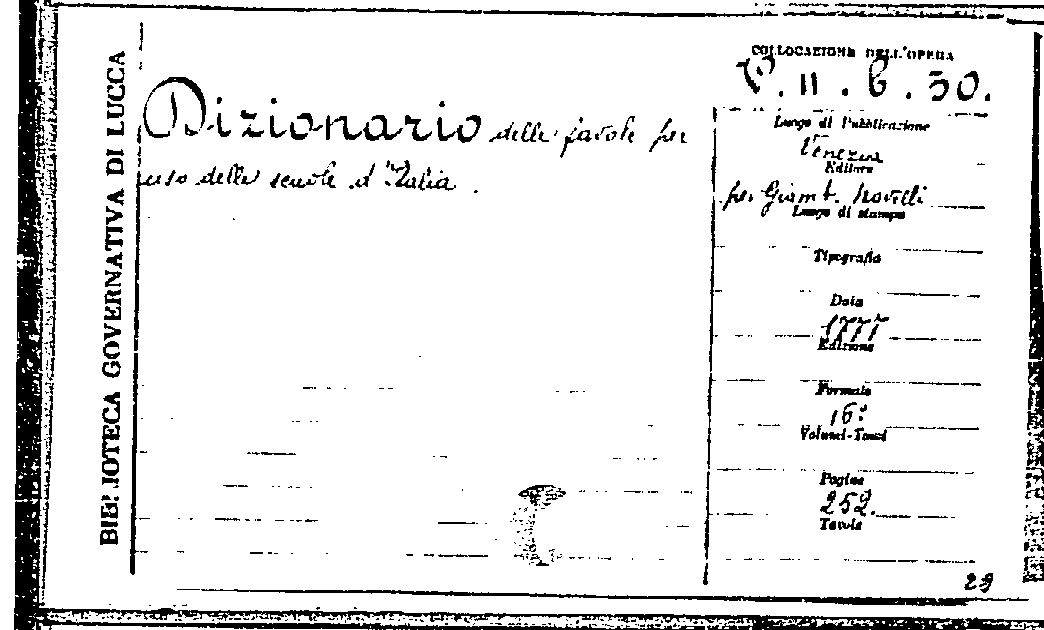 BIBLIOTECA GOVERNATIVA DI LUCCA
Dizionario delle favole per
uso delle scuole d'Italia.
COLLOCAZIONE DELL'OPERA
P. II. 6. 30.
Luogo di Pubblicazione
Venezia
Editore
per Giamb. Novelli
Luogo di stampa
Tipografia
Data
1777
Edizione
Formato
16º
Volumi-Tomi
Pagine
252.
Tavole
29